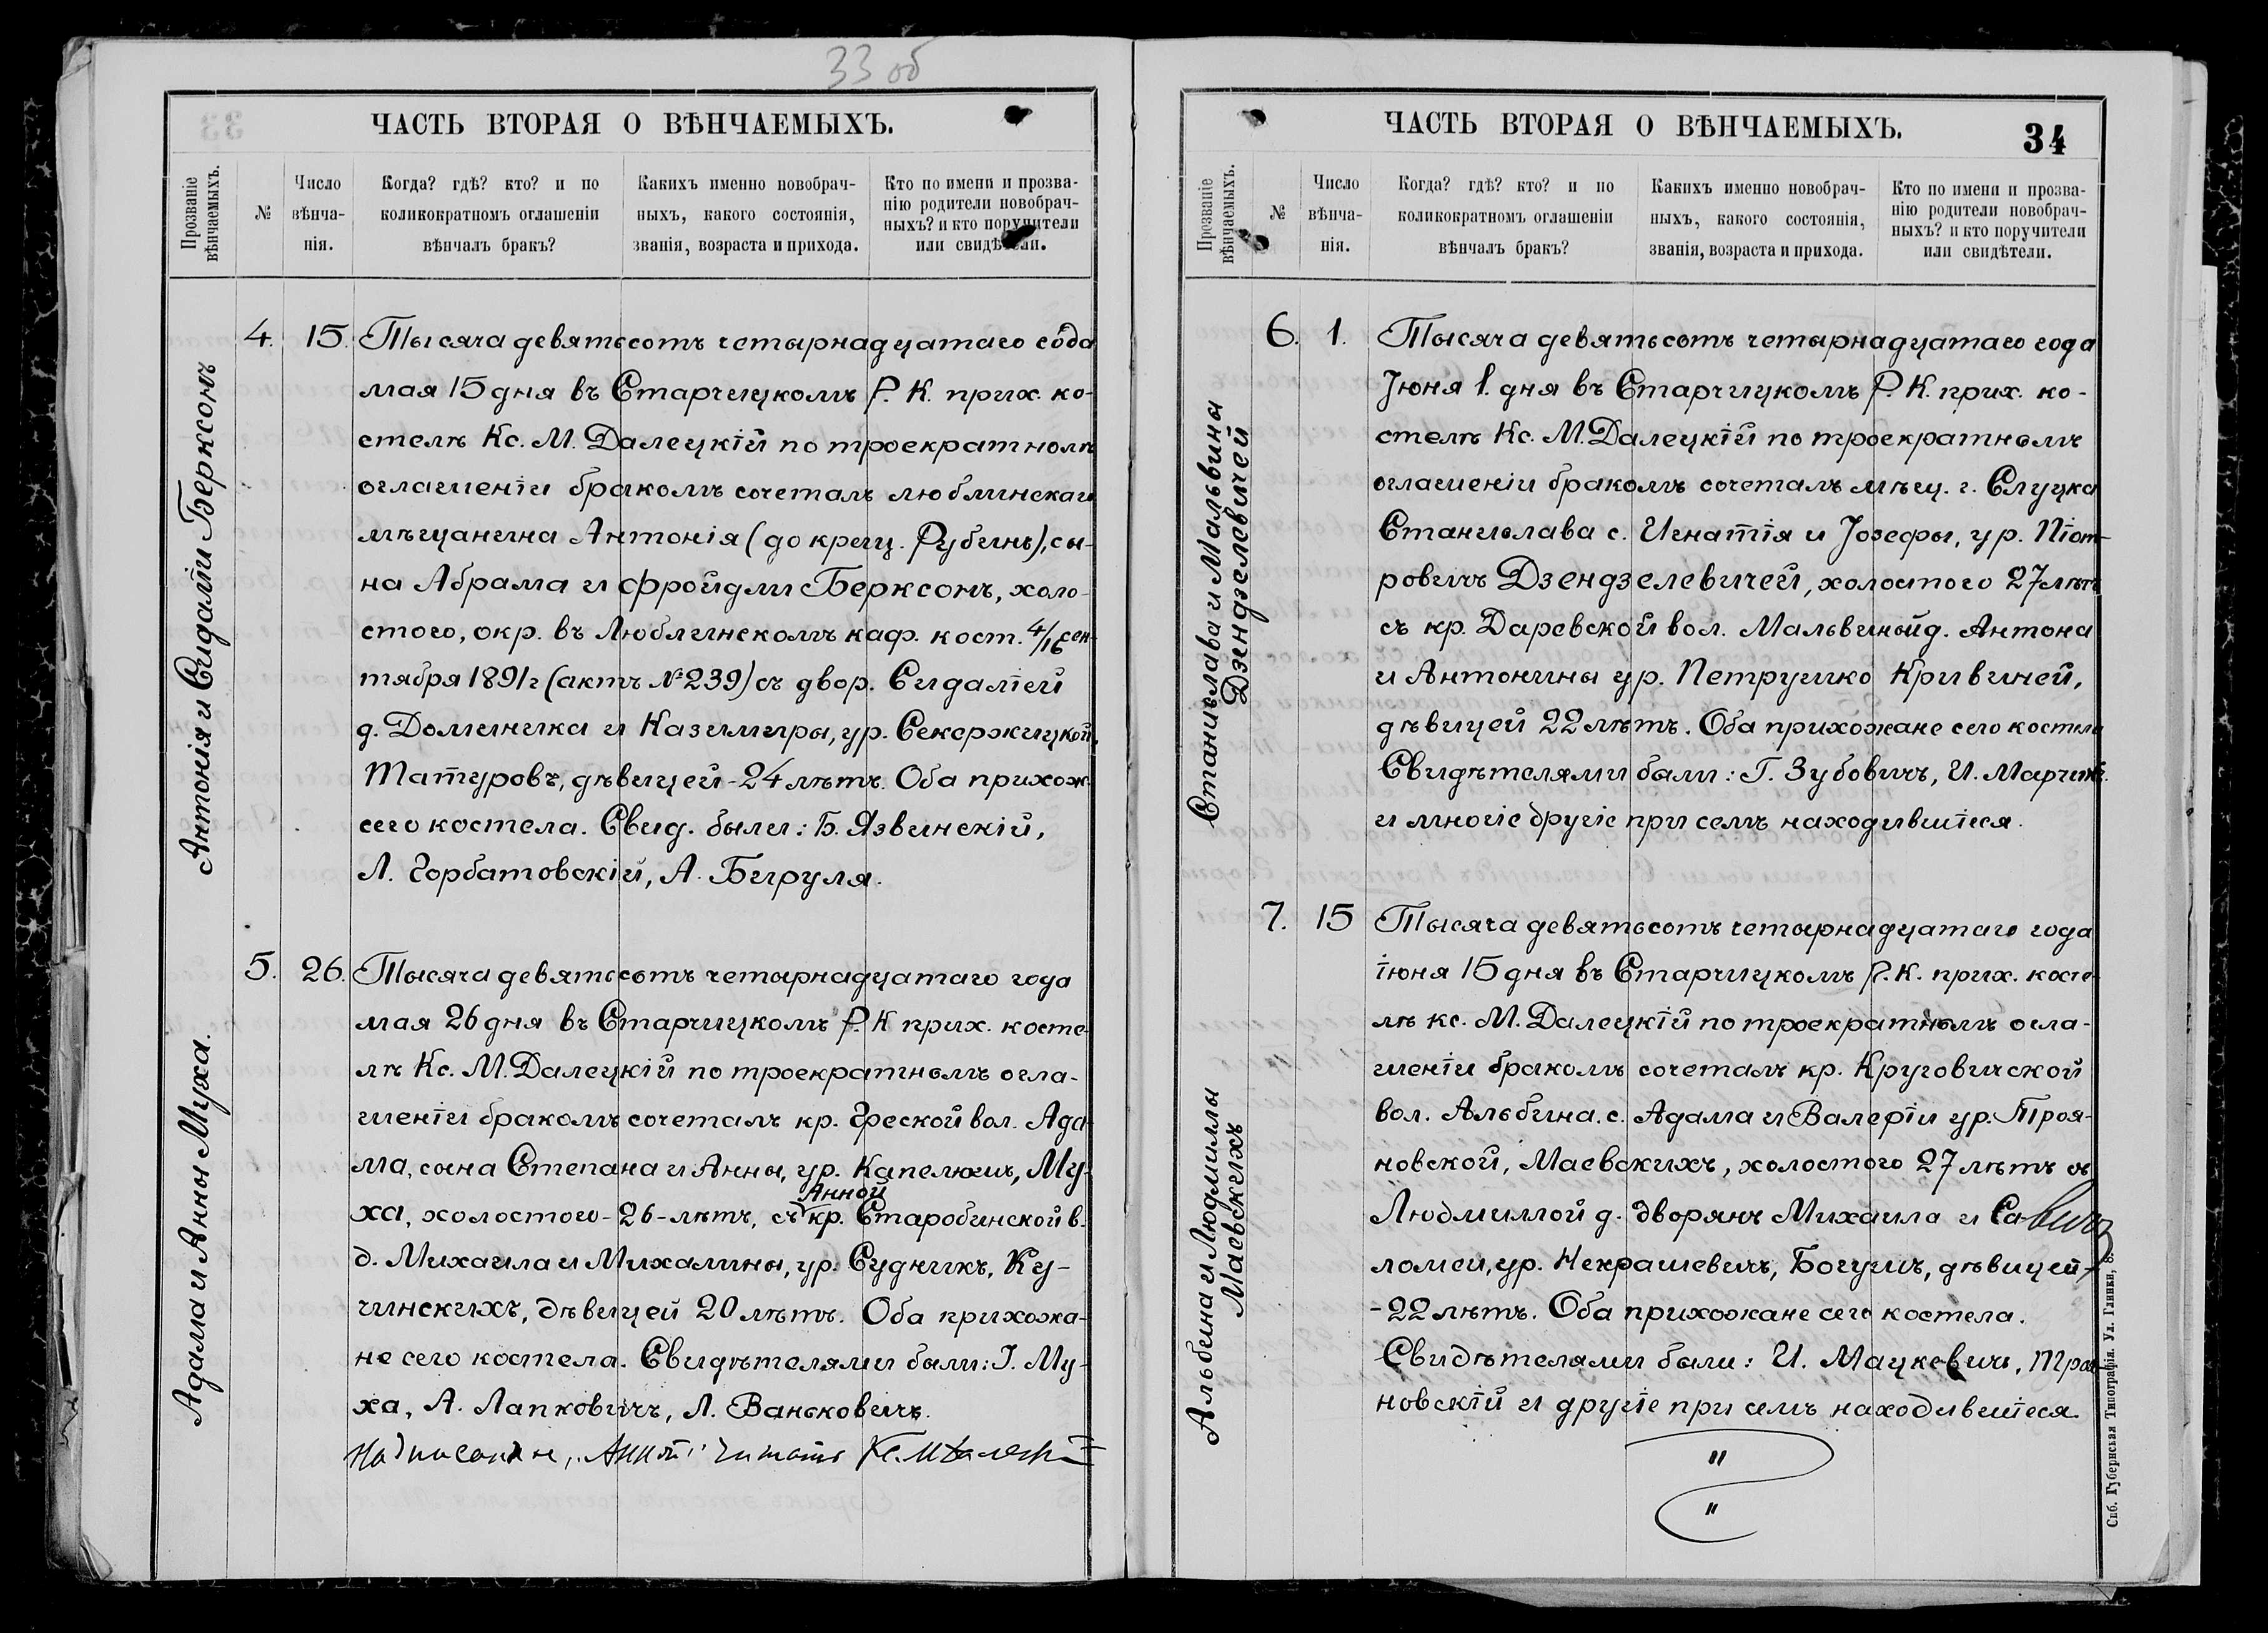 33 об
ЧАСТЬ ВТОРАЯ О ВѢНЧАЕМЫХЪ.
Прозваніе вѣнчаемыхъ.
№
Число вѣнча-нія.
Когда? гдѣ? кто? и по коликократномъ оглашеніи вѣнчалъ бракъ?
Какихъ именно новобрач-ныхъ, какого состоянія, званія, возраста и прихода.
Кто по имени и прозва-нію родители новобрач-ныхъ? и кто поручители или свидѣтели.
Антонія и Сидаліи Берксонъ
4. 15. Тысяча девятьсотъ четырнадцатаго года
мая 15 дня въ Старчицкомъ Р. К. прих. ко-
стелѣ Кс. М. Далецкій по троекратномъ
оглашеніи бракомъ сочеталъ люблинскаго
мѣщанина Антонія (до крещ. Рубинъ), сы-
на Абрама и Фройдли Берксонъ, холо-
стого, окр. въ Люблинскомъ каф. кост. 4/16 сен-
тября 1891 г (актъ № 239) съ двор. Сидаліей
д. Доминика и Казимиры, ур. Секержицкой,
Татуровъ, дѣвицей - 24 лѣтъ. Оба прихож.
сего костела. Свид. были: Б. Язвинскій,
Л. Горбатовскій, А. Бируля.
Адама и Анны Муха.
5. 26. Тысяча девятьсотъ четырнадцатаго года
мая 26 дня въ Старчицкомъ Р. К прих. косте-
лѣ Кс. М. Далецкій по троекратномъ огла-
шеніи бракомъ сочеталъ кр. Греской вол. Ада-
ма, сына Степана и Анны, ур. Капелюшъ, Му-
Анной
ха, холостого - 26 - лѣтъ, съ кр. Старобинской в.
д. Михаила и Михалины, ур. Судникъ, Ку-
чинскихъ, дѣвицей 20 лѣтъ. Оба прихожа-
не сего костела. Свидѣтелями были: І. Му-
ха, А. Лапковичъ, Л. Ваньковичъ.
Надписанное „Анной" читать Кс. М Далецкій
ЧАСТЬ ВТОРАЯ О ВѢНЧАЕМЫХЪ.
34
Прозваніе вѣнчаемыхъ.
№
Число вѣнча-нія.
Когда? гдѣ? кто? и по коликократномъ оглашеніи вѣнчалъ бракъ?
Какихъ именно новобрач-ныхъ, какого состоянія, званія, возраста и прихода.
Кто по имени и прозва-нію родители новобрач-ныхъ? и кто поручители или свидѣтели.
Станислава и Мальвины
Дзендзелевичей
6. 1. Тысяча девятьсотъ четырнадцатаго года
Іюня 1. дня въ Старчицкомъ Р. К. прих. ко-
стелѣ Кс. М. Далецкій по троекратномъ
оглашеніи бракомъ сочеталъ мѣщ. г. Слуцка
Станислава с. Игнатія и Іозефы, ур. Піот-
ровичъ Дзендзелевичей, холостого 27 лѣтъ
съ кр. Даревской вол. Мальвиной д. Антона
и Антонины ур. Петрушко Кривиней,
дѣвицей 22 лѣтъ. Оба прихожане сего костела
Свидѣтелями были: Г. Зубовичъ, И. Марчикъ.
и многіе другіе при семъ находившіеся.
Альбина и Людмиллы
Маевскихъ
7. 15 Тысяча девятьсотъ четырнадцатаго года
іюня 15 дня въ Старчицкомъ Р. К. прих. косте-
лѣ кс. М. Далецкій по троекратномъ огла-
шеніи бракомъ сочеталъ кр. Круговичской
вол. Альбина. с. Адама и Валеріи ур. Троя-
новской, Маевскихъ, холостого 27 лѣтъ съ
Людмиллой д. дворянъ Михаила и Са-
ломеи, ур. Некрашевичъ, Богушъ, дѣвицей -
- 22 лѣтъ. Оба прихожане сего костела.
Свидѣтелями были: И. Мацкевичъ, Троя-
новскій и другіе при семъ находившіеся.
Спб. Губернская Типографія. Ул. Глинки, 8.